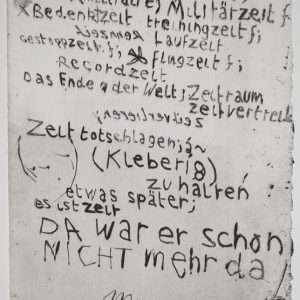 Militärzeit f
Bedenktzeit treningzeit f;
Laufzeit
gestoppzeit f; flugzeit f;
Recordzeit
Das Ende der Welt; Zeitraum
zeitvertreib
Zeit totschlagen;
(Kleber!8)
zu halten
etwas später;
es ist zeit
DA WAR er schon
NICHT mehr da